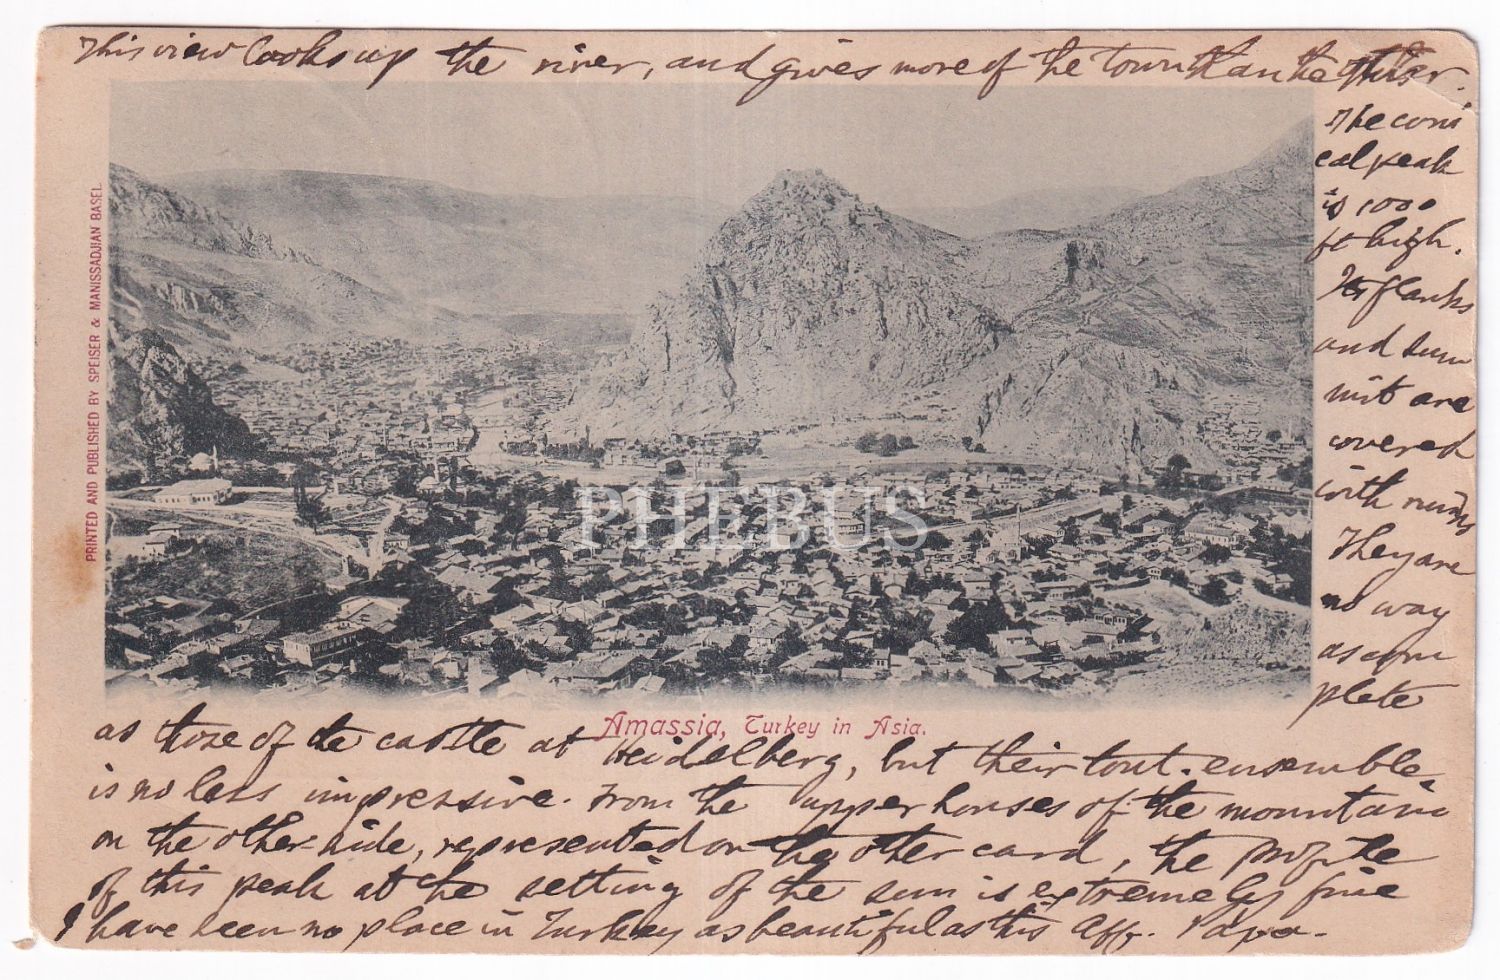 This view looks up the river, and gives more of the town than the other.
The coni
cal peak
is 1000
ft high.
Its flanks
and sum
mit are
covered
with ruins
They are
no way
as com
plete
PRINTED AND PUBLISHED BY SPEISER & MANISSADJIAN BASEL
PHEBUS
Amassia, Turkey in Asia.
as those of the castle at Heidelberg, but their tout-ensemble
is no less impressive. From the upper houses of the mountain
on the other side, represented on the other card, the profile
of this peak at the setting of the sun is extremely fine
I have been no place in Turkey as beautiful as this Aff. Papa.